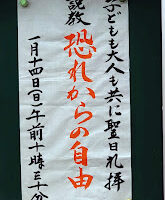 子ども大人も共に聖日礼拝
説教
恐れからの自由
一月十四日(日)午前十時三十分